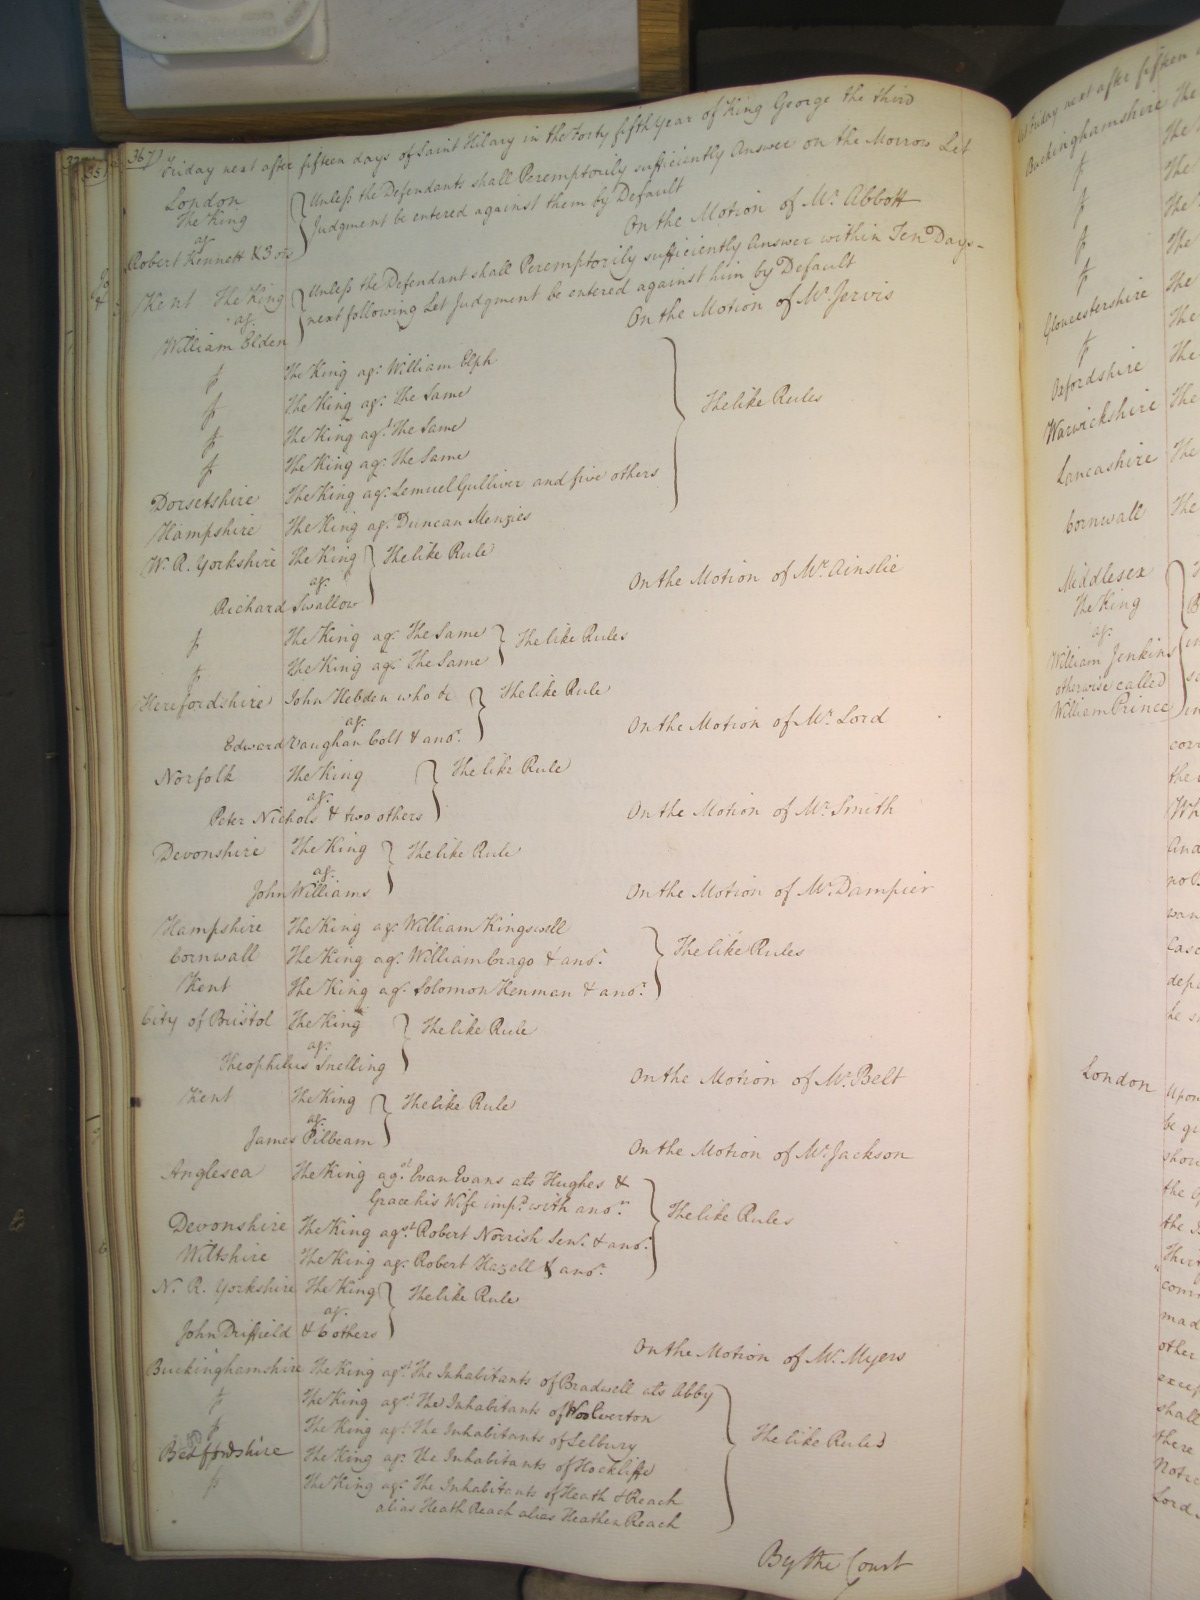 367
Friday next after fifteen days of Saint Hilary in the Forty fifth Year of King George the third
London
The King
agt
Robert Kennett & 3 ors
Unless the Defendants shall Peremptorily sufficiently Answer on the Morrow Let
Judgment be entered against them by Default
On the Motion of Mr. Abbott
Kent The King
agt
William Elden
Unless the Defendant shall Peremptorily sufficiently Answer within Ten Days
next following Let Judgment be entered against him by Default
On the Motion of Mr. Jervis
The King agt William Elph
The King agt The Same
The King agt The Same
The King agt The Same
Dorsetshire The King agt Lemuel Gulliver and five others
The like Rules
Hampshire The King agt Duncan Menzies
W. R. Yorkshire The King
agt
Richard Swallow
The like Rule
On the Motion of Mr. Ainslie
The King agt The Same
The King agt The Same
The like Rules
Herefordshire John Hebden who &c
agt
Edward Vaughan Colt & anor.
The like Rule
On the Motion of Mr. Lord
Norfolk The King
agt
Peter Nichols & two others
The like Rule
On the Motion of Mr. Smith
Devonshire The King
agt
John Williams
The like Rule
On the Motion of Mr. Dampier
Hampshire The King agt William Kingswell
Cornwall The King agt William Crago & anor.
Kent The King agt Solomon Henman & anor.
The like Rules
City of Bristol The King
agt
Theophilus Snelling
The like Rule
On the Motion of Mr. Belt
Kent The King
agt
James Pilbeam
The like Rule
On the Motion of Mr. Jackson
Anglesea The King agst Evan Evans ats Hughes &
Grace his Wife impd with anor.
Devonshire The King agst Robert Norrish Senr. & anor.
Wiltshire The King agt Robert Hazell & anor.
The like Rules
N. R. Yorkshire The King
agt
John Driffield & 6 others
The like Rule
On the Motion of Mr. Myers
Buckinghamshire The King agst The Inhabitants of Bradwell ats Abby
The King agst The Inhabitants of Woolverton
The King agt The Inhabitants of Selbury
Bedfordshire The King agt The Inhabitants of Hockliffe
The King agt The Inhabitants of Heath & Reach
alias Heath Reach alias Heathen Reach
The like Rules
By the Court
Friday next after fifteen
Buckinghamshire The
The
The
The
The
The
Gloucestershire The
The
Oxfordshire The
Warwickshire The
Lancashire The
Cornwall The
Middlesex
The King
agt
William Jenkins
otherwise called
William Prince
London Upon